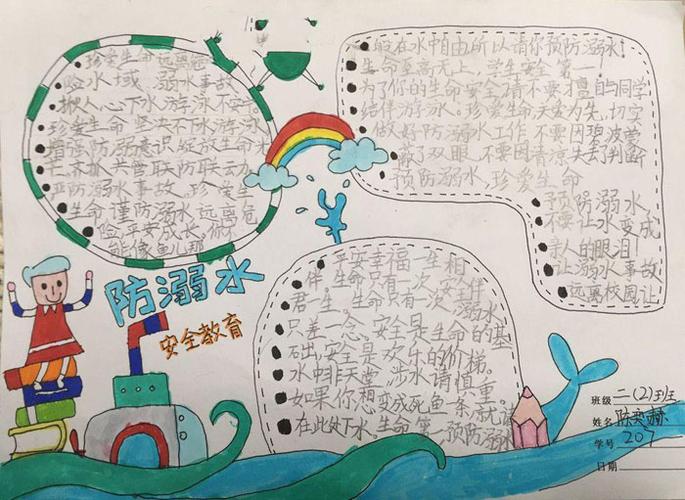 珍爱生命远离危
险水域 溺水事故
揪人心下水游泳不安全
珍爱生命 坚决不下水游泳
防溺意识 绽放生命
共管联防联去
严防溺水事故 珍爱生
生命谨防溺水 远离危
险 平安成长 你不
能像鱼儿那
般在水中自由所以请你预防溺水!
生命至高无上,学生安全第一!
为了你的生命安全 请不要擅自与同学
结伴游泳。珍爱生命,关爱为先,切实
做好防溺水工作 不要因碧波荡
了双眼 不要因清凉失去判断
预防溺水 珍爱生命
预防溺水,
不要让水变成
亲人的眼泪!
让溺水事故
远离校园让
平安幸福一生相
伴。生命只有一次 安全伴
君一生。生命只有一次 溺水
只差一念 安全是生命的基
石出 安全是欢乐的阶梯。
水中非天堂,涉水请慎重。
如果你想变成死鱼一条,就请
在此处下水。生命第一预防溺水
防溺水
安全教育
班级 二(2)班
姓名 陈奕赫
学号 207
日期